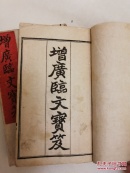 增廣臨文寶笈
增廣臨文寶